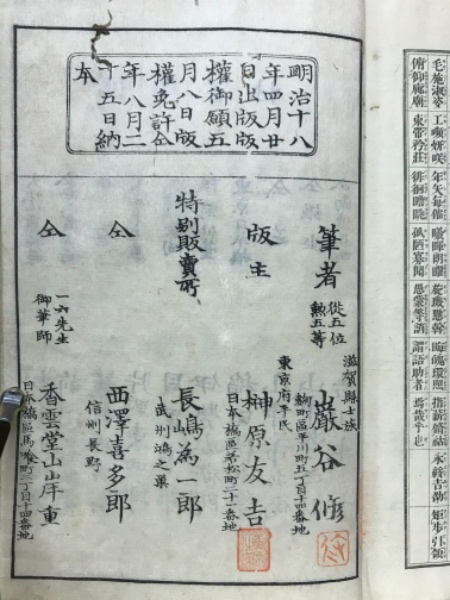 毛施淑姿 工嚬妍咲 年矢每催 曦暉朗曜 璇璣懸斡 晦魄環照 指薪脩祜 永綏吉劭 矩步引領
俯仰廊廟 束帶矜莊 徘徊瞻眺 孤陋寡聞 愚蒙等誚 謂語助者 焉哉乎也
明治十八
年四月廿
日出版版
權御願五
月八日版
權免許仝
年八月二
十五日納
本
筆者
從五位
勲五等
滋賀縣士族
麹町區平川町五丁目十四番地
巖谷修
版主
東京府平民
日本橋區若松町二十一番地
榊原友吉
特別販賣所
武州鴻之巢
長嶋為一郎
仝
信州長野
西澤喜多郎
仝
一六先生
御筆師
日本橋區馬喰町二丁目十四番地
香雲堂山岸重